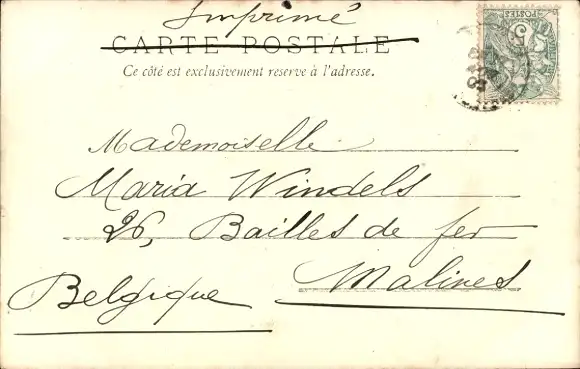 Imprimé
CARTE POSTALE
Ce côté est exclusivement reservé à l'adresse.
Mademoiselle
Maria Windels
26, Bailles de fer
Malines
Belgique
5
POSTES